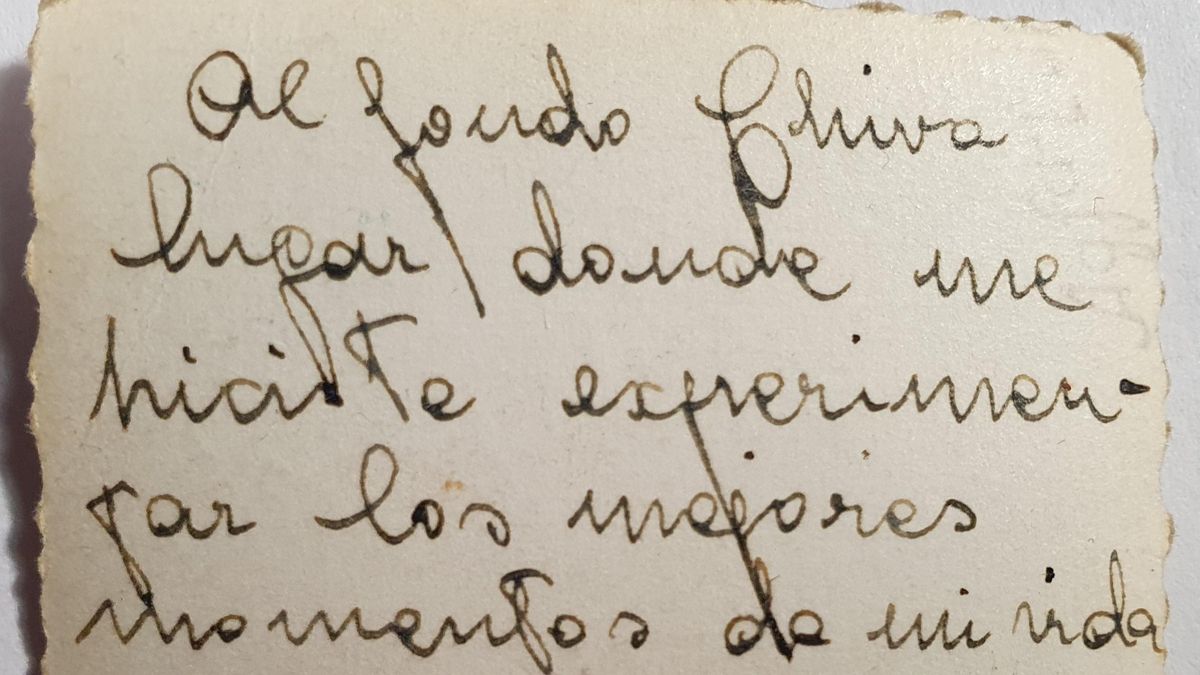 Al fondo Chiva
lugar donde me
hiciste experimen-
tar los mejores
momentos de mi vida